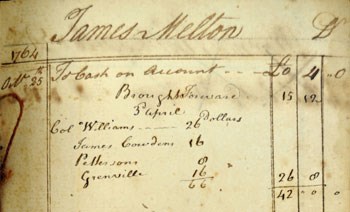 James Melton Dr
1764
Octr 25th To Cash on Account - - - £0 4 -0
Brought Forward 15 12
5 April
Col Williams - - - - 26 Dollars
James Cowdens 16
Pettersons 8
Grenville 16 26 8
66 42 -0 -0